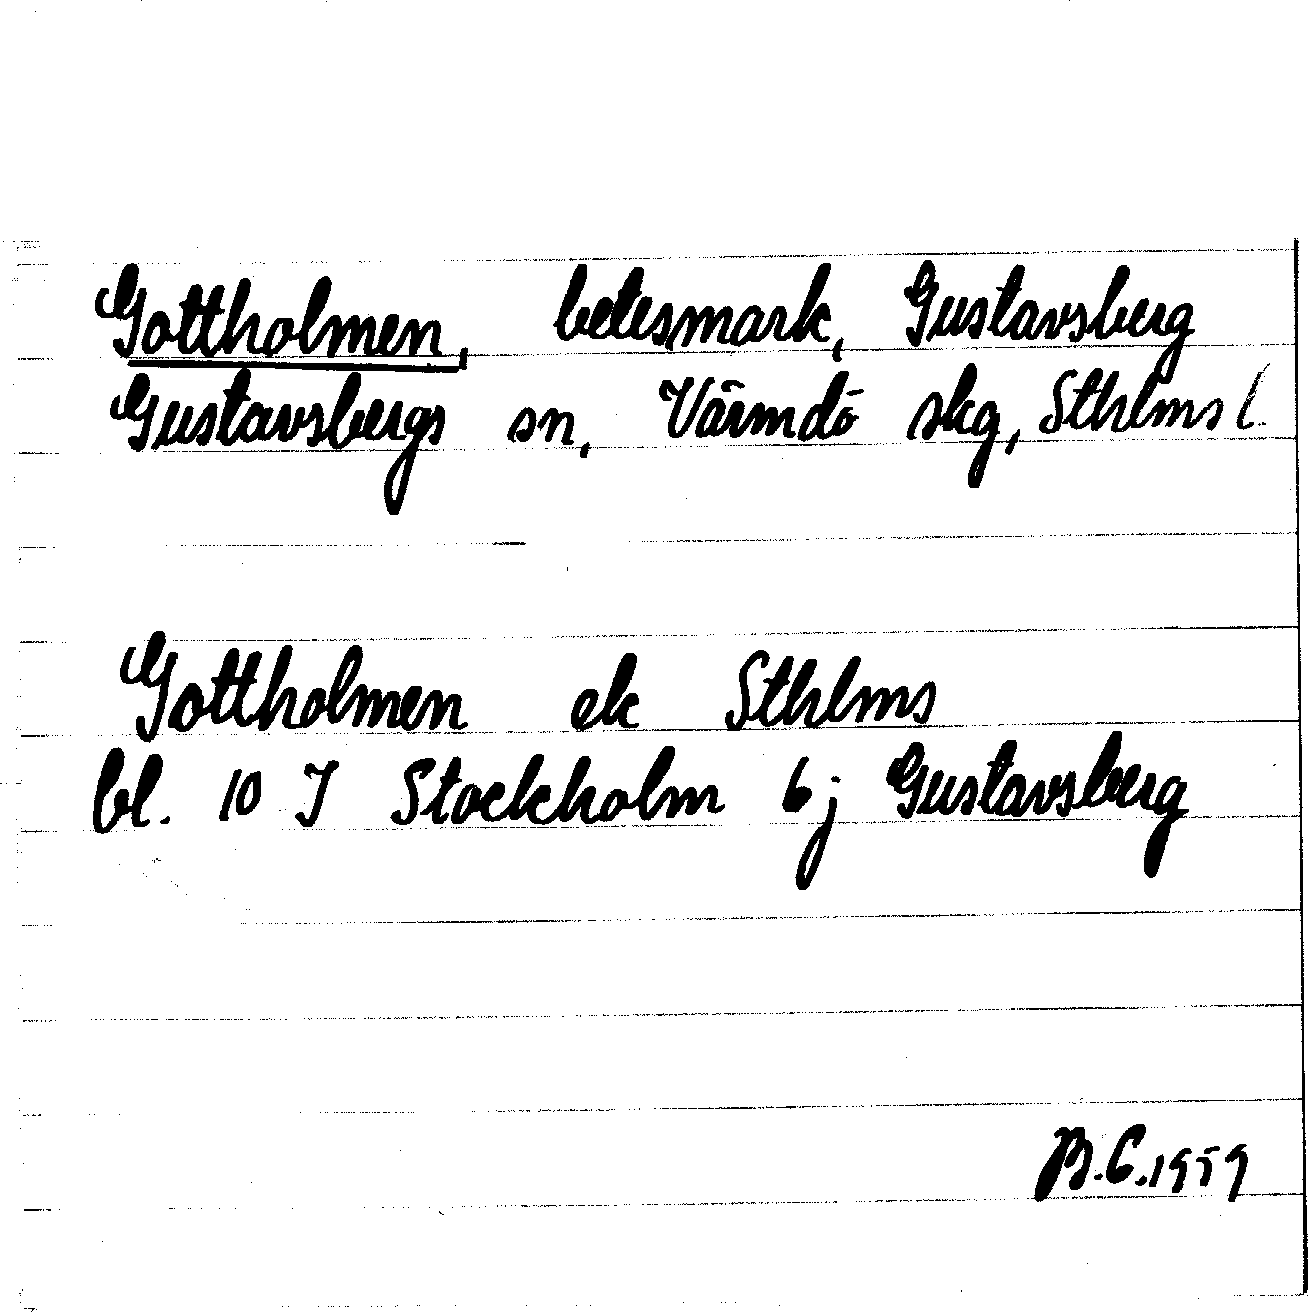 Gottholmen, betesmark, Gustavsberg
Gustavsbergs sn, Värmdö skg, Sthlms l.
Gottholmen ek Sthlms
bl. 10 I Stockholm 6 j Gustavsberg
B.C. 1959